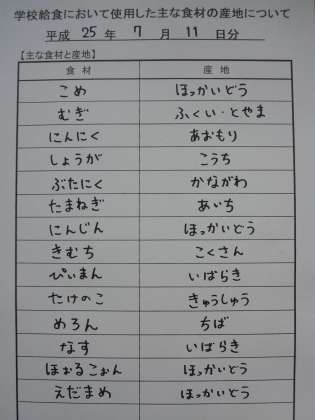 学校給食において使用した主な食材の産地について
平成 25 年 7 月 11 日分
【主な食材と産地】
食材 産地
こめ ほっかいどう
むぎ ふくい・とやま
にんにく あおもり
しょうが こうち
ぶたにく かながわ
たまねぎ あいち
にんじん ほっかいどう
きむち こくさん
ぴぃまん いばらき
たけのこ きゅうしゅう
めろん ちば
なす いばらき
ほぉるこぉん ほっかいどう
えだまめ ほっかいどう